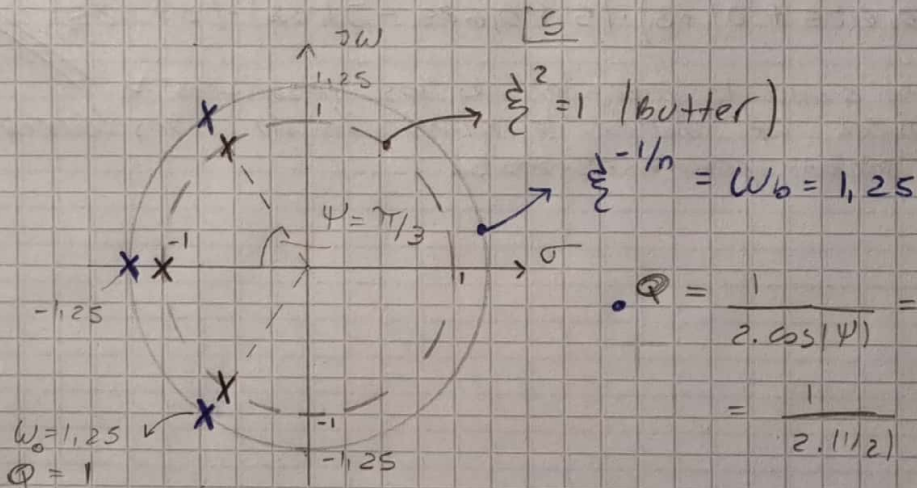 ⌊S
jω
1,25
1
ξ² = 1 (Butter)
ξ^(-1/n) = ω_b = 1,25
ψ = π/3
σ
-1
1
-1,25
• Q = 1 / 2.cos(ψ) =
= 1 / 2.(1/2)
-1
-1,25
ω₀ = 1,25
Q = 1